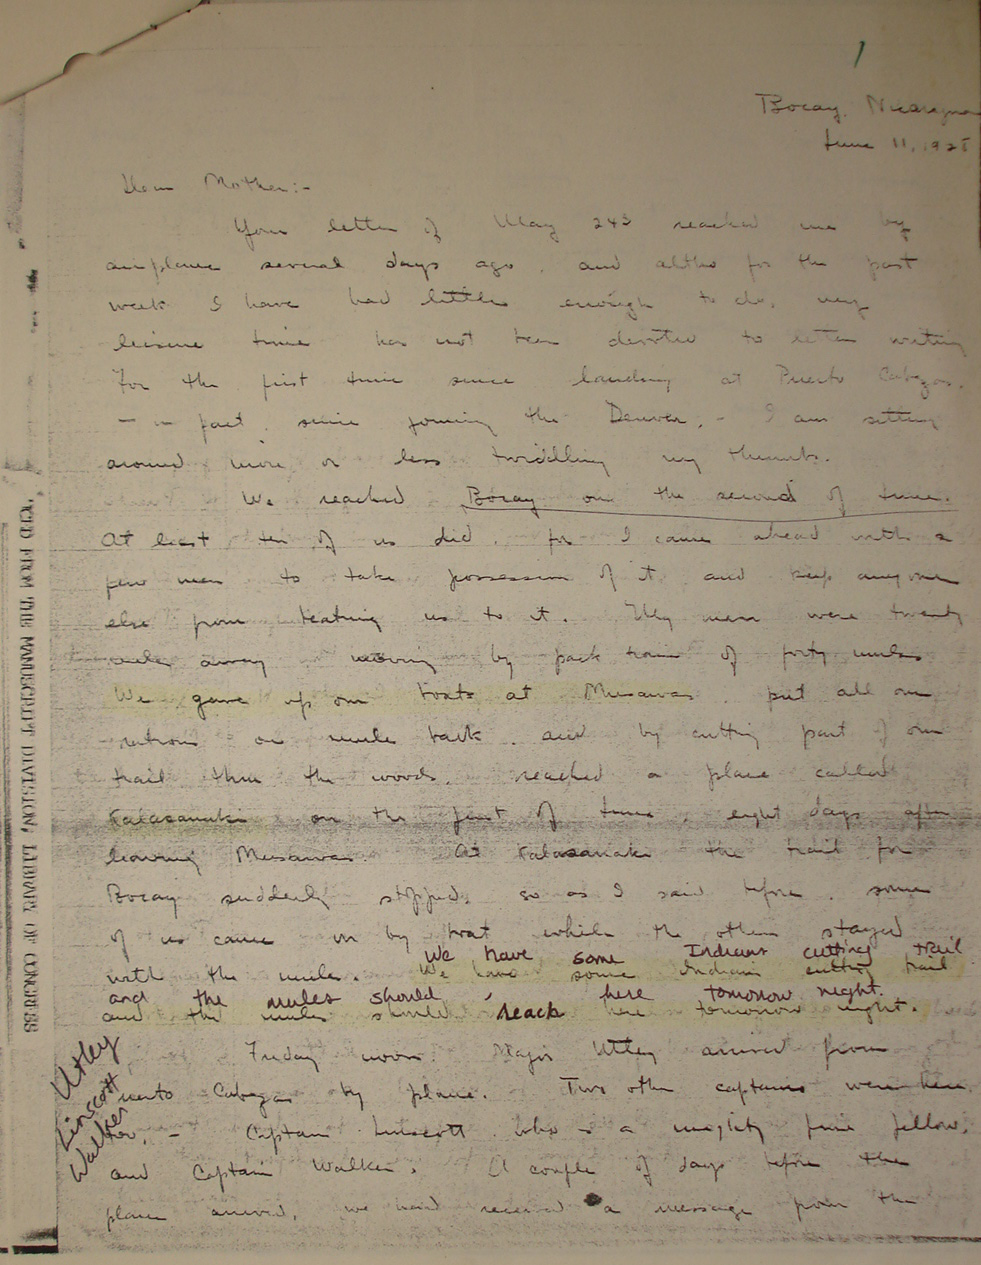 1
Bocay, Nicaragua
June 11, 1928
Dear Mother:-
Your letter of May 24th reached me by
airplane several days ago, and altho for the past
week I have had little enough to do, my
leisure time has not been devoted to letter writing
For the first time since landing at Puerto Cabezas,
- in fact, since joining the Denver, - I am sitting
around more or less twiddling my thumbs.
We reached Bocay on the second of June.
At least ten of us did, for I came ahead with a
few men to take possession of it and keep anyone
else from beating us to it. My men were twenty
miles away moving by pack train of forty mules
We gave up our boats at Musawas, put all our
rations on mule back, and by cutting part of our
trail thru the woods, reached a place called
Kalasanaki on the first of June, eight days after
leaving Musawas. At Kalasanaki the trail for
Bocay suddenly stopped, so as I said before, some
of us came on by boat while the others stayed
We have some Indians cutting trail
with the mules. We have some Indians cutting trail
and the mules should, here tomorrow night.
and the mules should reach here tomorrow night.
Friday noon Major Utley arrived from
Puerto Cabezas by plane. Two other captains were here
too, - Captain Linscott who is a mighty fine fellow,
and Captain Walker. A couple of days before the
plane arrived, we had received a message from the
Utley
Linscott
Walker
FROM THE MANUSCRIPT DIVISION, LIBRARY OF CONGRESS